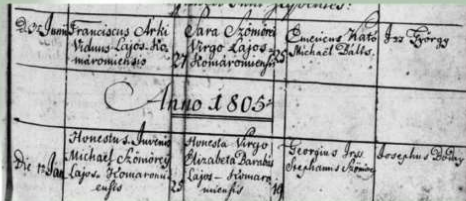 Franciscus Arki
Viduus Lajos. Ko-
máromiensis
27
Sara Szönörei
Virgo Lajos-
Komáromiensis
25
Emericus Kató
Michaël Balts.
Györgÿ
Anno 1805
Die 1 Jan
Honestus Juvenis
Michaël Szönörei
Lajos. Komáromi-
ensis
25
Honesta Virgo
Elizabeta Darabis
Lajos-Komáro-
miensis
19
Georgius
Stephanus
Josephus